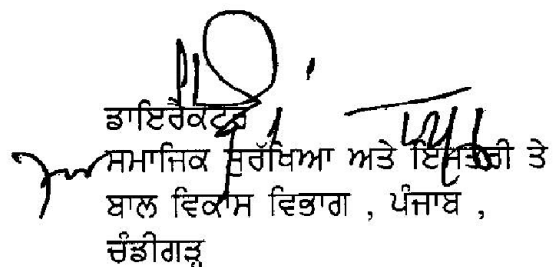 ਡਾਇਰੈਕਟਰ
ਸਮਾਜਿਕ ਸੁਰੱਖਿਆ ਅਤੇ ਇਸਤਰੀ ਤੇ
ਬਾਲ ਵਿਕਾਸ ਵਿਭਾਗ , ਪੰਜਾਬ ,
ਚੰਡੀਗੜ੍ਹ